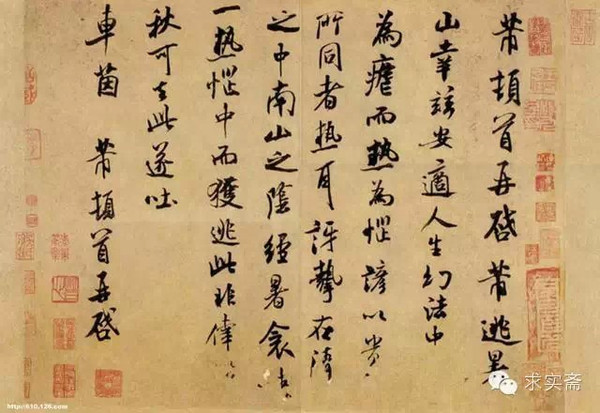 芾頓首再啓芾逃暑
山幸茲安適人生幻法中
為瘧而熱為惱諺以貴
所同者熱耳訝摯在清
之中南山之陰經暑衾
一熱惱中而獲逃此非偉
秋可去此遂吐
車茵 芾頓首再啓
求实斋